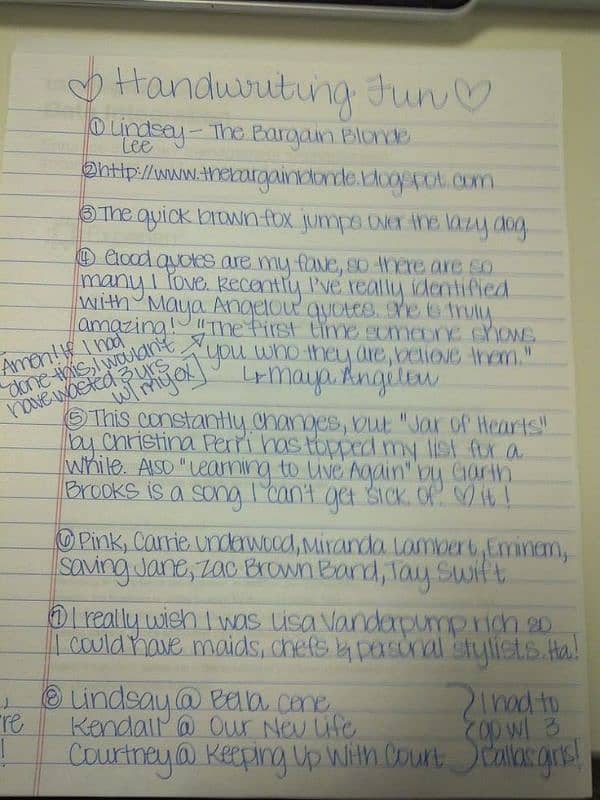 ♡ Handwriting Fun ♡
① Lindsey - The Bargain Blonde
Lee
② http://www.thebargainblonde.blogspot.com
③ The quick brown fox jumps over the lazy dog
④ Good quotes are my fave, so there are so
many I love. Recently I've really identified
with Maya Angelou quotes. She is truly
amazing! "The first time someone shows
you who they are, believe them."
↳ Maya Angelou
Amen! If I had
done this, I wouldn't
have wasted 3 yrs
w/ my ex
⑤ This constantly changes, but "Jar of Hearts"
by Christina Perri has topped my list for a
while. Also "Learning to Live Again" by Garth
Brooks is a song I can't get sick of. ♡ it!
⑥ Pink, Carrie Underwood, Miranda Lambert, Eminem,
Saving Jane, Zac Brown Band, Tay Swift
⑦ I really wish I was Lisa Vanderpump rich so
I could have maids, chefs & personal stylists. Ha!
⑧ Lindsay @ Bella Cene
Kendall @ Our New Life
Courtney @ Keeping Up With Court
I had to
go w/ 3
Dallas girls!